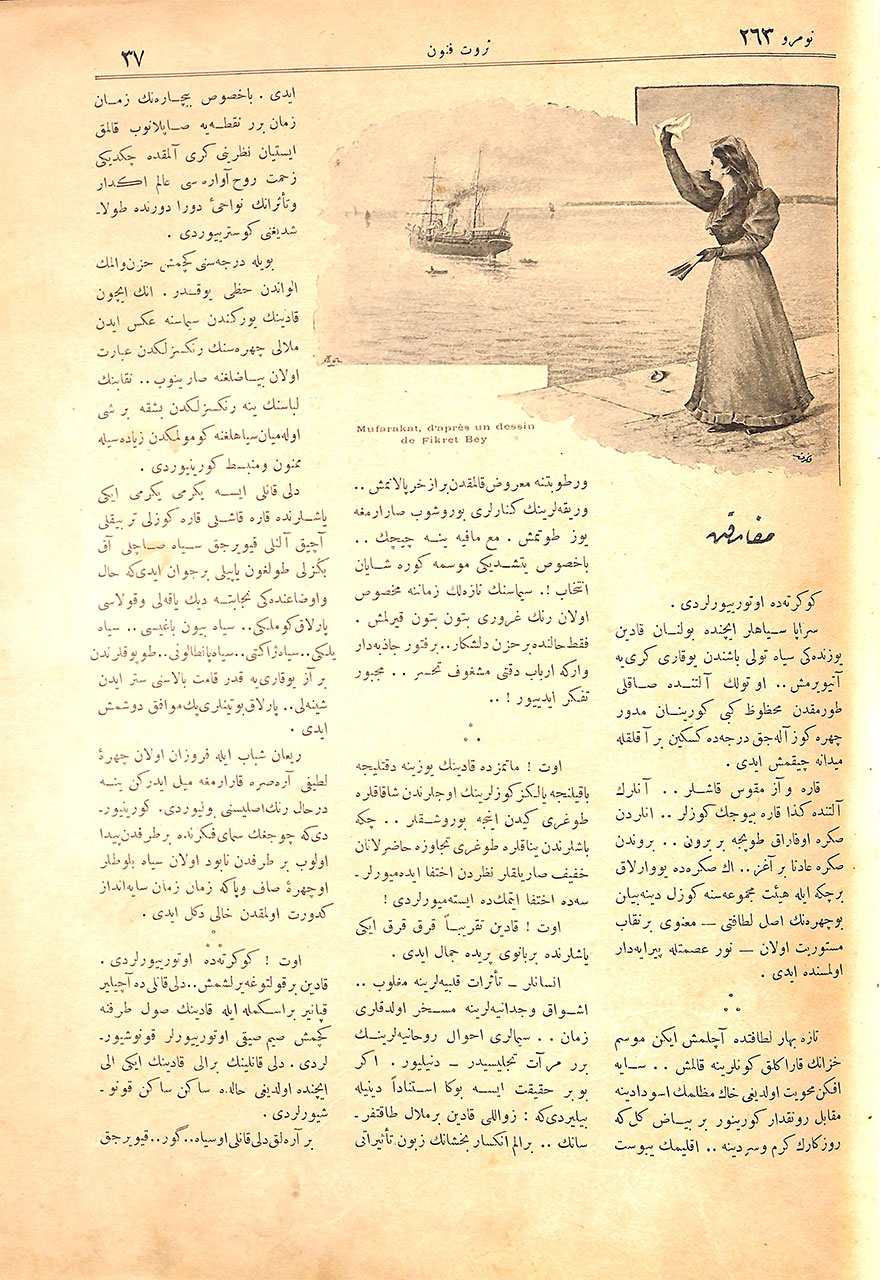 نومرو ٢٦٣
ثروت فنون
٣٧
Mufarakat, d'après un dessin
de Fikret Bey
مفارقت
كوكرته‌ده اوتورییورلردی .
سراپا سیاهلر ایچنده بولنان قادین
یوزنده‌كی سیاه تولی باشندن یوقاری كری‌یه
آتیویرمش .. او تولك آلتنده صاقلی
طورمقدن محظوظ كبی كورینان مدور
چهره كوز آله‌جق درجه‌ده كسكین بر آقلقله
میدانه چیقمش ایدی .
قاره و آز مقوس قاشلر .. آنلرك
آلتنده كذا قاره بیوجك كوزلر .. انلردن
صكره اوفاراق طوپجه بر برون .. بروندن
صكره عادتا بر آغز .. اك صكره‌ده یووارلاق
برچكه ایله هیئت مجموعه‌سنه كوزل دینه‌بیلن
بوچهره‌نك اصل لطافتی — معنوی بر نقاب
مستوریت اولان — نور عصمتله پیرایه‌دار
اولمسنده ایدی .
تازه بهار لطافتده آچلمش ایكن موسم
خزانك قاراكلق كونلرینه قالمش .. سایه
افكن محویت اولدیغی خاك مظلمك اسودادینه
مقابل رونقدار كورینور بر بیاض كل كه
روزكارك كرم وسردینه .. اقلیمك یبوست
ورطوبتنه معروض قالمقدن براز خرپالانمش ..
وریقه‌لرینك كنارلری بوروشوب صارارمغه
یوز طوتمش . مع مافیه ینه چیچك ..
باخصوص یتشدیكی موسمه كوره شایان
انتخاب !. سیماسنك تازه‌لك زماننه مخصوص
اولان رنك غروری بتون بتون قیرلمش .
فقط حالنده برحزن دلشكار .. برفتور جاذبه‌دار
واركه ارباب دقتی مشغوف تحسر .. مجبور
تفكر ایدییور ! ..
اوت ! ماتمزده قادینك یوزینه دقتلیجه
باقیلنجه یالكز كوزلرینك اوجلرندن شاقاقلره
طوغری كیدن اینجه بوروشقلر .. چكه
باشلرندن یناقلره طوغری تجاوزه حاضرلانان
خفیف صاریلقلر نظردن اختفا ایده‌میورلر-
سه‌ده اختفا ایتمك‌ده ایسته‌میورلردی !
اوت ! قادین تقریباً قرق قرق ایكی
یاشلرنده بربانوی پریده جمال ایدی .
انسانلر — تأثرات قلبیه‌لرینه مغلوب ..
اشواق وجدانیه‌لرینه مسخر اولدقاری
زمان .. سیمالری احوال روحانیه‌لرینك
برر مرآت تجلیسیدر — دنیلیور . اكر
بو بر حقیقت ایسه بوكا استناداً دینیله
بیلیردی‌كه : زواللی قادین بر ملال طاقتفر-
سانك .. برالم انكسار بخشانك زبون تأثیراتی
ایدی . باخصوص بیچاره‌نك زمان
زمان برر نقطه‌یه صاپلانوب قالمق
ایستیان نظرینی كری آلمقده چكدیكی
زحمت روح آواره‌سی عالم اكدار
وتأثراتك نواحیٔ دورا دورنده طولا-
شدیغنی كوسترییوردی .
بویله درجه‌سنی كچمش حزن والمك
الواندن حظی یوقدر . انك ایچون
قادینك یوركندن سیماسنه عكس ایدن
ملالی چهره‌سنك رنكسزلكدن عبارت
اولان بیاضلغنه صارینوب .. نقابنك
لباسنك ینه رنكسزلكدن بشقه بر شی
اوله‌میان سیاهلغنه كومولمكدن زیاده‌سیله
ممنون ومنبسط كورینیوردی .
دلی قانلی ایسه یكرمی یكرمی ایكی
یاشلرنده قاره قاشلی قاره كوزلی تر بیقلی
آچیق آلنلی قیویرجق سیاه صاچلی آق
بكزلی طولغون یاپیلی برجوان ایدی‌كه حال
واوضاعنده‌كی نجابته دیك یاقه‌لی وقولاسی
پارلاق كوملكی .. سیاه بیون باغیسی .. سیاه
یلكی .. سیاه ژاكتی .. سیاه پانطالونی .. طوپوقلرندن
بر آز یوقاری‌یه قدر قامت بالاسنی ستر ایدن
شینه‌لی .. پارلاق بوتینلری پك موافق دوشمش
ایدی .
ریعان شباب ایله فروزان اولان چهرهٔ
لطیفی آره‌صره قارارمغه میل ایدركن ینه
درحال رنك اصلیسنی بولیوردی . كورینیور-
دی‌كه چوجغك سمای فكرنده بر طرفدن پیدا
اولوب بر طرفدن نابود اولان سیاه بلوطلر
اوچهرهٔ صاف وپاكه زمان زمان سایه‌انداز
كدورت اولمقدن خالی دكل ایدی .
اوت ! كوكرته‌ده اوتورییورلردی .
قادین بر قولتوغه یرلشمش .. دلی قانلی ده آچیلیر
قپانیر براسكمله ایله قادینك صول طرفنه
كچمش صیم صیقی اوتورییورلر قونوشیور-
لردی . دلی قانلینك بر الی قادینك ایكی الی
ایچنده اولدیغی حالده ساكن ساكن قونو-
شیورلردی .
بر آره‌لق دلی قانلی اوسیاه .. گور .. قیویرجق